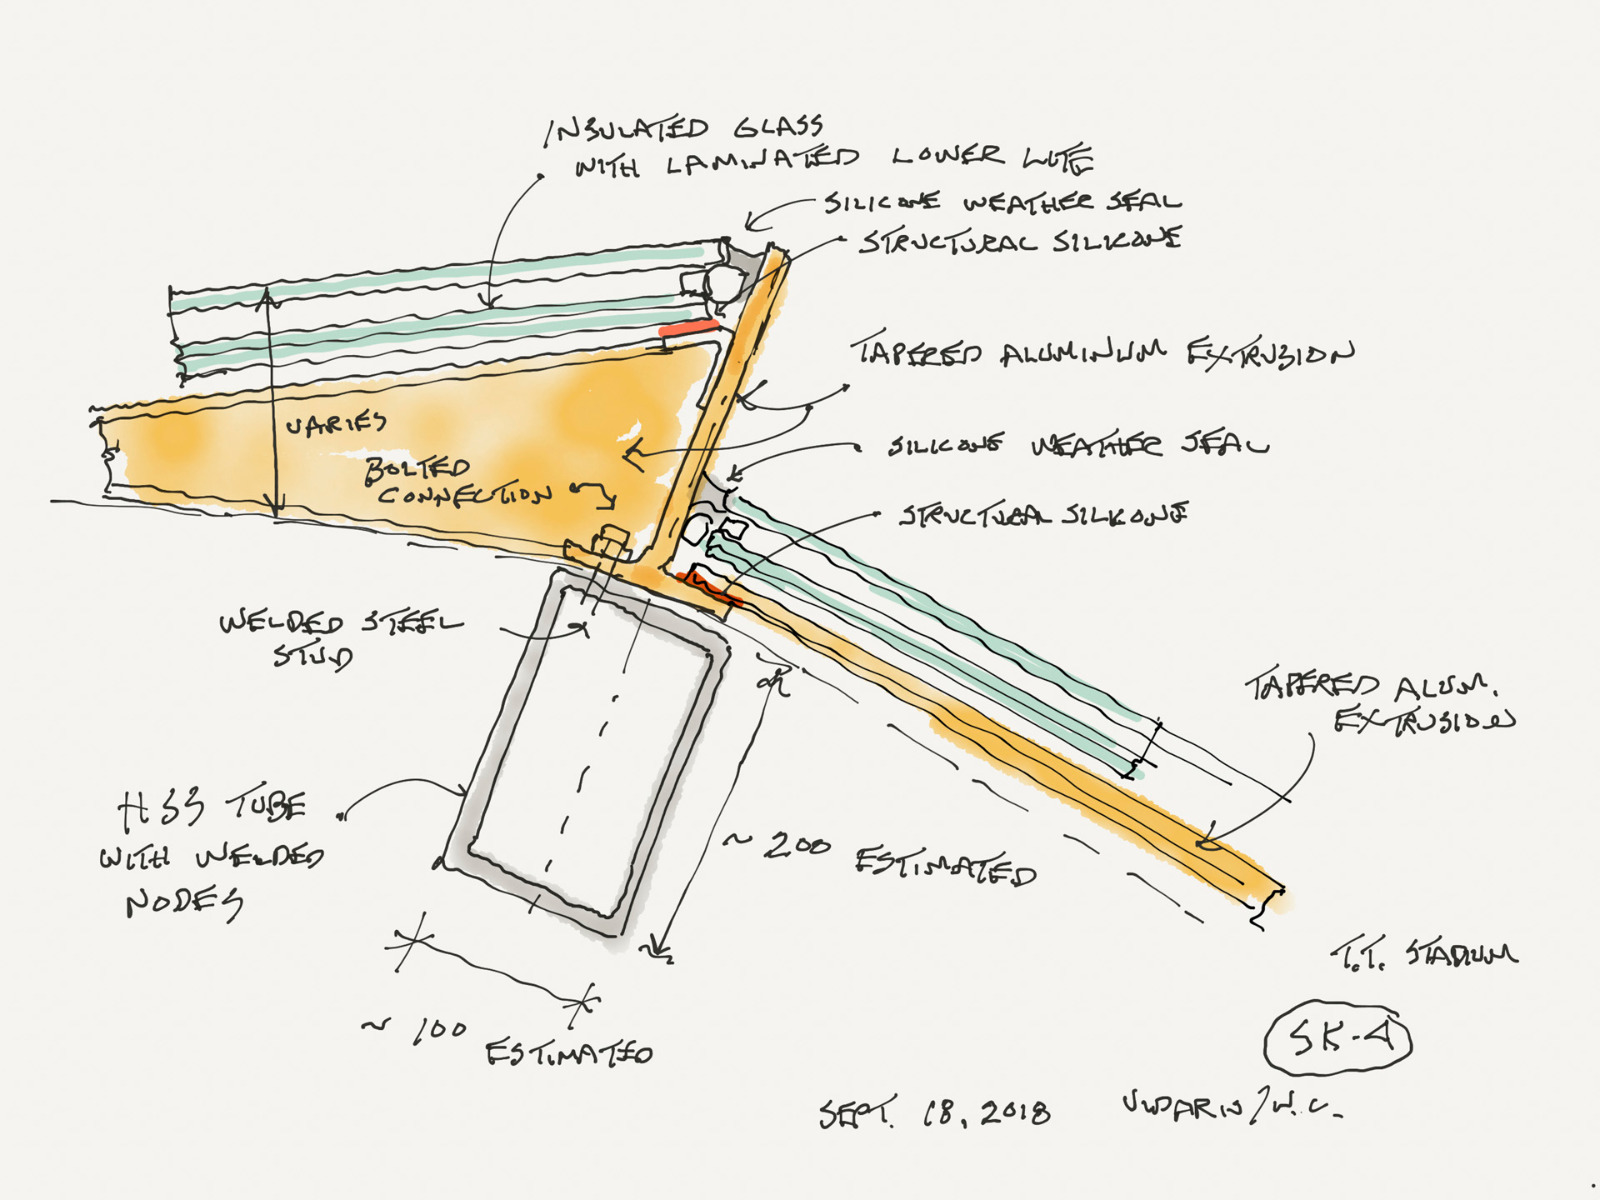 INSULATED GLASS
WITH LAMINATED LOWER LITE
SILICONE WEATHER SEAL
STRUCTURAL SILICONE
TAPERED ALUMINUM EXTRUSION
VARIES
BOLTED
CONNECTION
SILICONE WEATHER SEAL
STRUCTURAL SILICONE
WELDED STEEL
STUD
TAPERED ALUM.
EXTRUSION
HSS TUBE
WITH WELDED
NODES
~ 200 ESTIMATED
~ 100
ESTIMATED
T.T. STADIUM
SEPT. 18, 2018